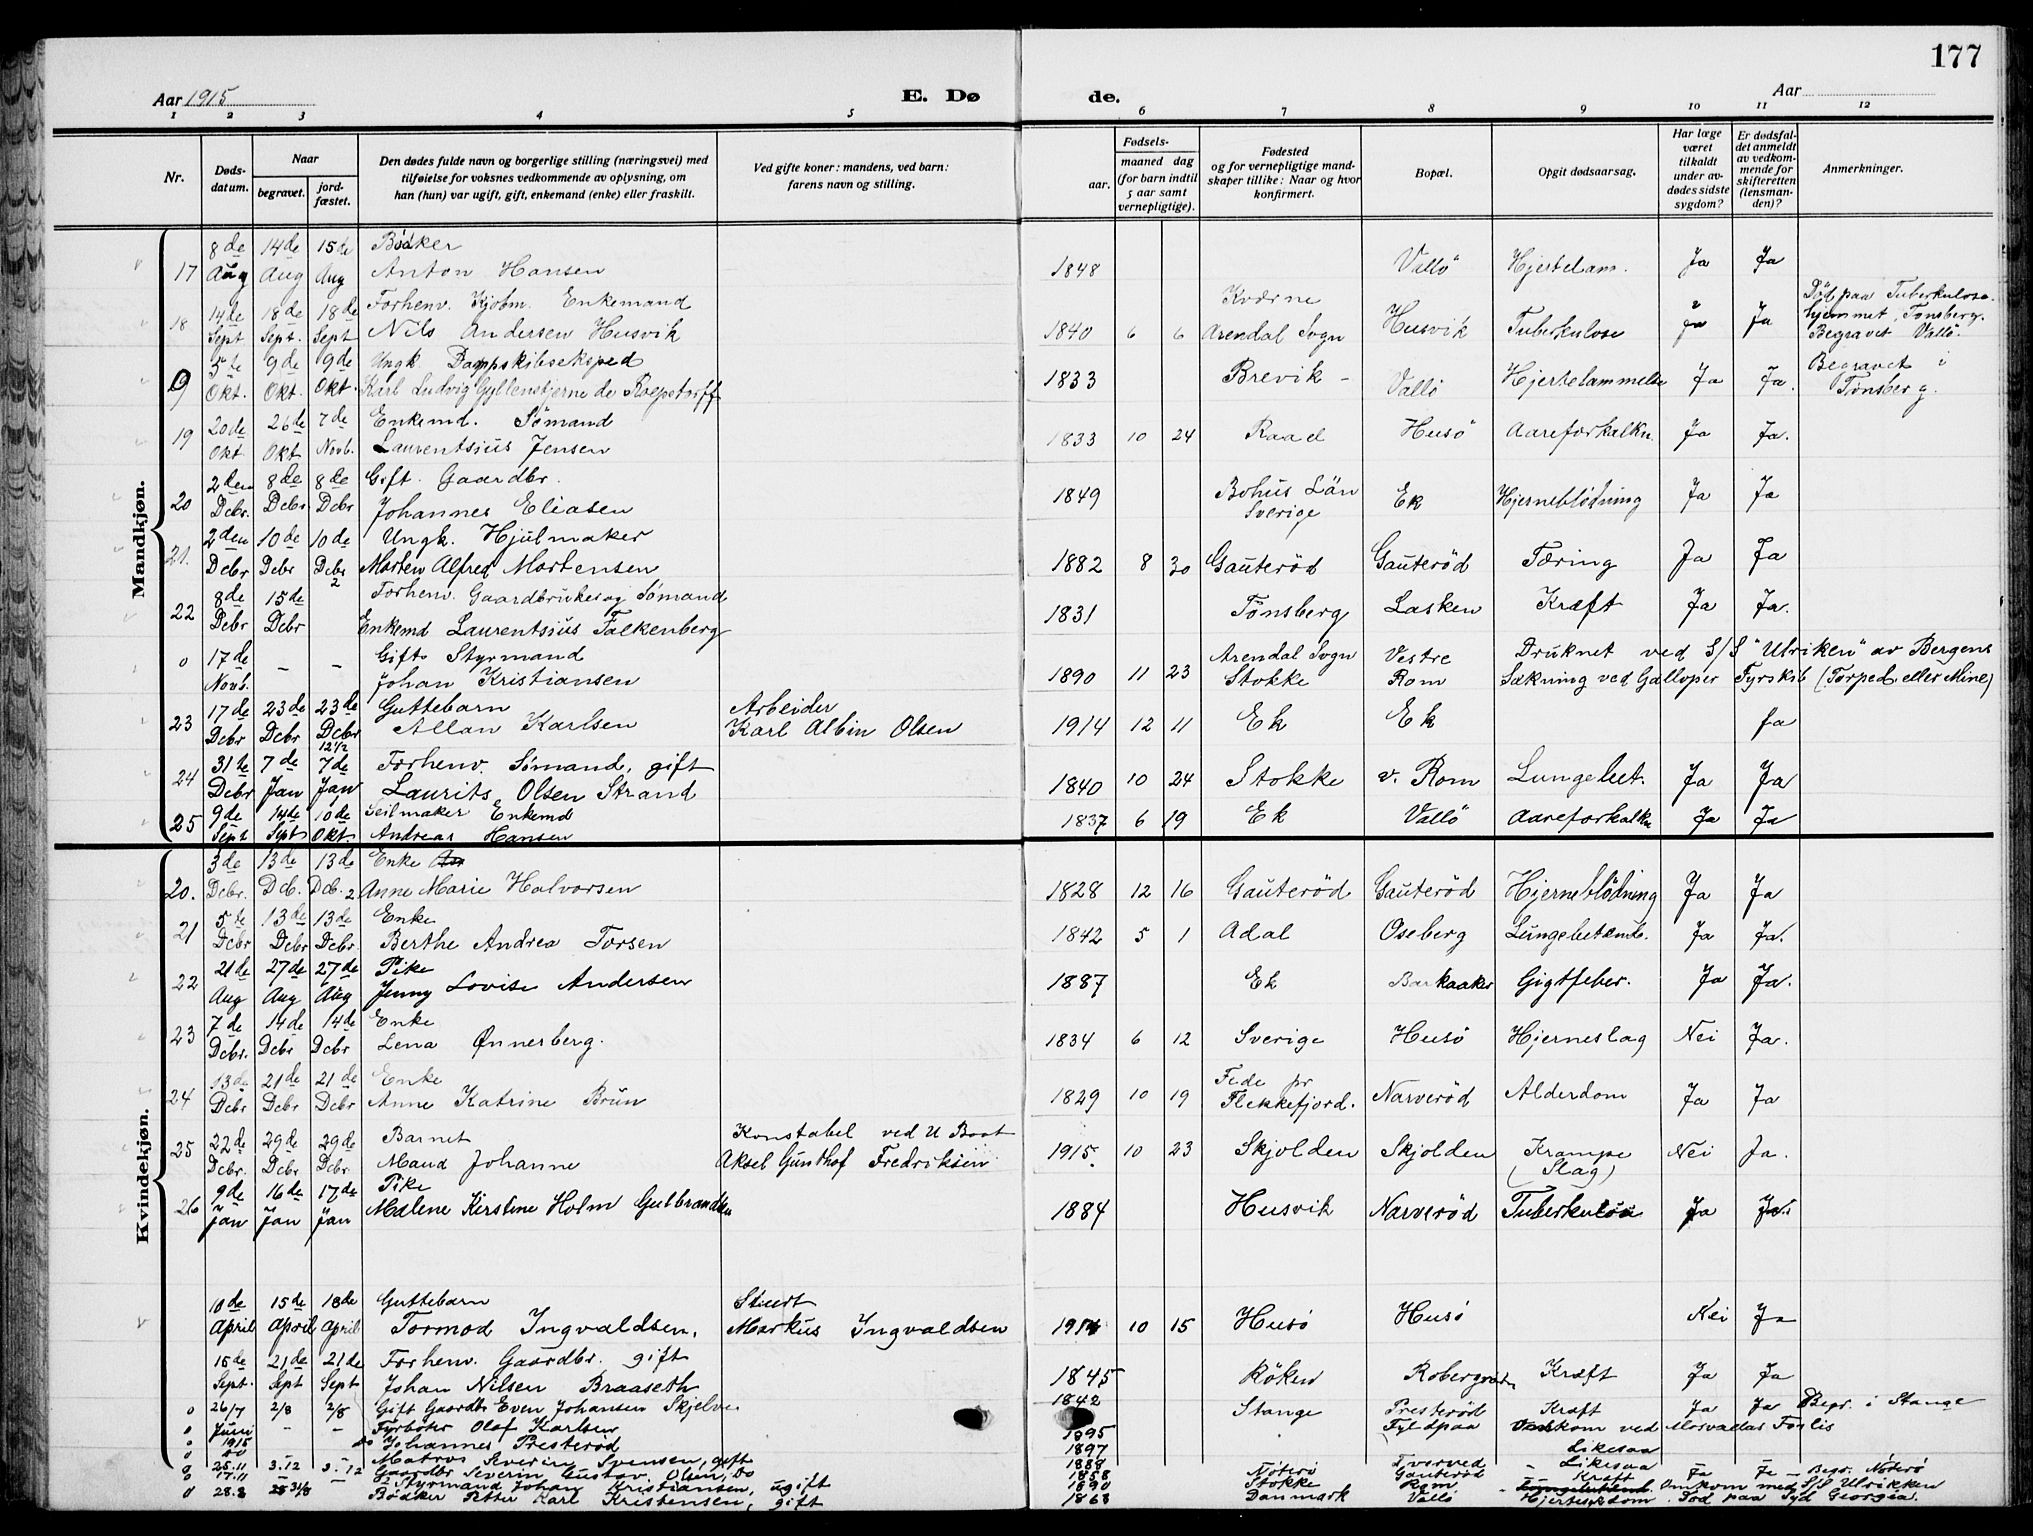 177
Aar 1915
E. Dø
de.
Aar
1 2 3 4 5 6 7 8 9 10 11 12
Nr.
Døds-
datum.
Naar
begravet.
jord-
fæstet.
Den dødes fulde navn og borgerlige stilling (næringsvei) med
tilføielse for voksnes vedkommende av oplysning, om
han (hun) var ugift, gift, enkemand (enke) eller fraskilt.
Ved gifte koner: mandens, ved barn:
farens navn og stilling.
Fødsels-
aar.
maaned dag
(for barn indtil
5 aar samt
vernepligtige).
Fødested
og for vernepligtige mand-
skaper tillike: Naar og hvor
konfirmert.
Bopæl.
Opgit dødsaarsag.
Har læge
været
tilkaldt
under av-
dødes sidste
sygdom?
Er dødsfal-
det anmeldt
av vedkom-
mende for
skifteretten
(lensman-
den)?
Anmerkninger.
Mandkjøn.
17 8de Aug 14de Aug 15de Aug Bødker
Anton Hansen 1848 Vallö Hjertelam. Ja Ja
18 14de Sept 18de Sept. 18de Sept Forhenv. Kjøbm. Enkemand
Nils Andersen Husvik 1840 6 6 Kværne Arendal Sogn Husvik Tuberkulose Ja Ja Død paa Tuberkulose-
hjemmet, Tønsberg.
Begravet Vallö.
9 5te Okt. 9de Okt. 9de Okt. Ungk Dampskibseksped
Karl Ludvig Gyllenstjerne de Roepstorff 1833 Brevik - Vallö Hjertelammelse Ja Ja. Begravet i
Tønsberg.
19 20de Okt 26de Okt 7de Novb. Enkemd. Sømand
Laurentsius Jensen 1833 10 24 Raad Husö Aareforkalkn. Ja Ja.
20 2den Dcbr. 8de Dcbr. 8de Dcbr Gift. Gaardbr.
Johannes Eliasen 1849 Bohus Län Sverige Ek Hjerneblödning Ja Ja
21. 2den Dcbr 10de Dcbr 10de Dcbr 2 Ungk. Hjulmaker
Morten Alfred Mortensen 1882 8 30 Gauteröd Gauteröd Tæring Ja Ja
22 8de Dcbr 15de Dcbr Forhenv. Gaardbruker og Sømand
Enkemd Laurentsius Falkenberg 1831 Tønsberg Lasken Kræft Ja Ja.
o 17de Novb. - - Gift Styrmand
Johan Kristiansen 1890 11 23 Arendal Sogn Stokke Vestre Rom Druknet ved S/S "Ulriken" av Bergens
Sækning ved Galloper Fyrskib (Torped. eller Mine)
23 17de Dcbr 23de Dcbr 23de Dcbr Guttebarn
Allan Karlsen Arbeider
Karl Albin Olsen 1914 12 11 Ek Ek Ja
24 31te Dcbr 7de Jan 12 1/2 7de Jan Forhenv. Sømand, gift
Laurits Olsen Strand 1840 10 24 Stokke v. Rom Lungebet. Ja Ja
25 9de Sept 14de Sept 10de Okt. Seilmaker Enkemd
Andreas Hansen 1837 6 19 Ek Vallö Aareforkalkn Ja Ja
Kvindekjøn.
20. 3de Dcbr. 13de Dcb. 13de Dcb. 2 Enke
Anne Marie Halvorsen 1828 12 16 Gauteröd Gauteröd Hjerneblödning Ja Ja
21 5te Dcbr 13de Dcbr 13de Dcbr Enke
Berthe Andrea Torsen 1842 5 1 Adal Oseberg Lungebetænd. Ja Ja.
22 21de Aug 27de Aug 27de Aug Pike
Jenny Lovise Andersen 1887 Ek Barkaaker Gigtfeber. Ja Ja.
23 7de Dcbr. 14de Dcbr 14de Dcbr Enke
Lena Ønnerberg. 1834 6 12 Sverige Husö Hjerneslag Nei Ja.
24 13de Dcbr 21de Dcbr 21de Dcbr Enke
Anne Katrine Brun 1829 10 19 Fede pr Flekkefjord. Narveröd Alderdom Ja Ja
25 22de Dcbr. 29de Dcbr 29de Dcbr. Barnet
Maud Johanne Konstabel ved U Baat
Aksel Gunthof Fredriksen 1915. 10 23 Skjolden Skjolden Krampe (Slag) Nei Ja.
26 9de Jan 16de Jan 17de Jan Pike
Malene Kirstine Holm Gulbrandsen 1884 Husvik Narveröd Tuberkulose Ja Ja.
10de April 15de April 18de April Guttebarn
Tormod Ingvaldsen. Stuert
Markus Ingvaldsen 1914 10 15 Husö Husö Nei Ja
15de Sept. 21de Sept 21de Sept Forhenv. Gaardbr. gift
Johan Nilsen Braaseth 1845 Röken Robergvalen Kræft Ja Ja
o 26/7 2/8 2/8 Gift Gaardbr Even Johansen Skjelve 1842 Stange Presteröd Kræft Ja Ja Begr. i Stange
o Juni 1915 - - Fyrböter Olof Karlsen 1895 Fyldpaa Omkom ved Morvattas Forlis
o do Johannes Presteröd 1897 Likesaa
o Matros Severin Svensen, gift 1888 Tverved - Likesaa
o 25.11 3.12 3.12 Gaardbr Severin Gustav Olsen, do 1858 Nöterö Gauteröd Kræft Ja Ja - Begr. Nöterö
o 17.11 - - Styrmand Johan Kristiansen, ugift 1890 Stokke Rom - Omkom med S/S Ulrikken
o 28.8 31/8 Bødker Petter Karl Kristensen, gift 1868 Danmark Vallö Hjertesykdom. Död paa Syd Georgia.